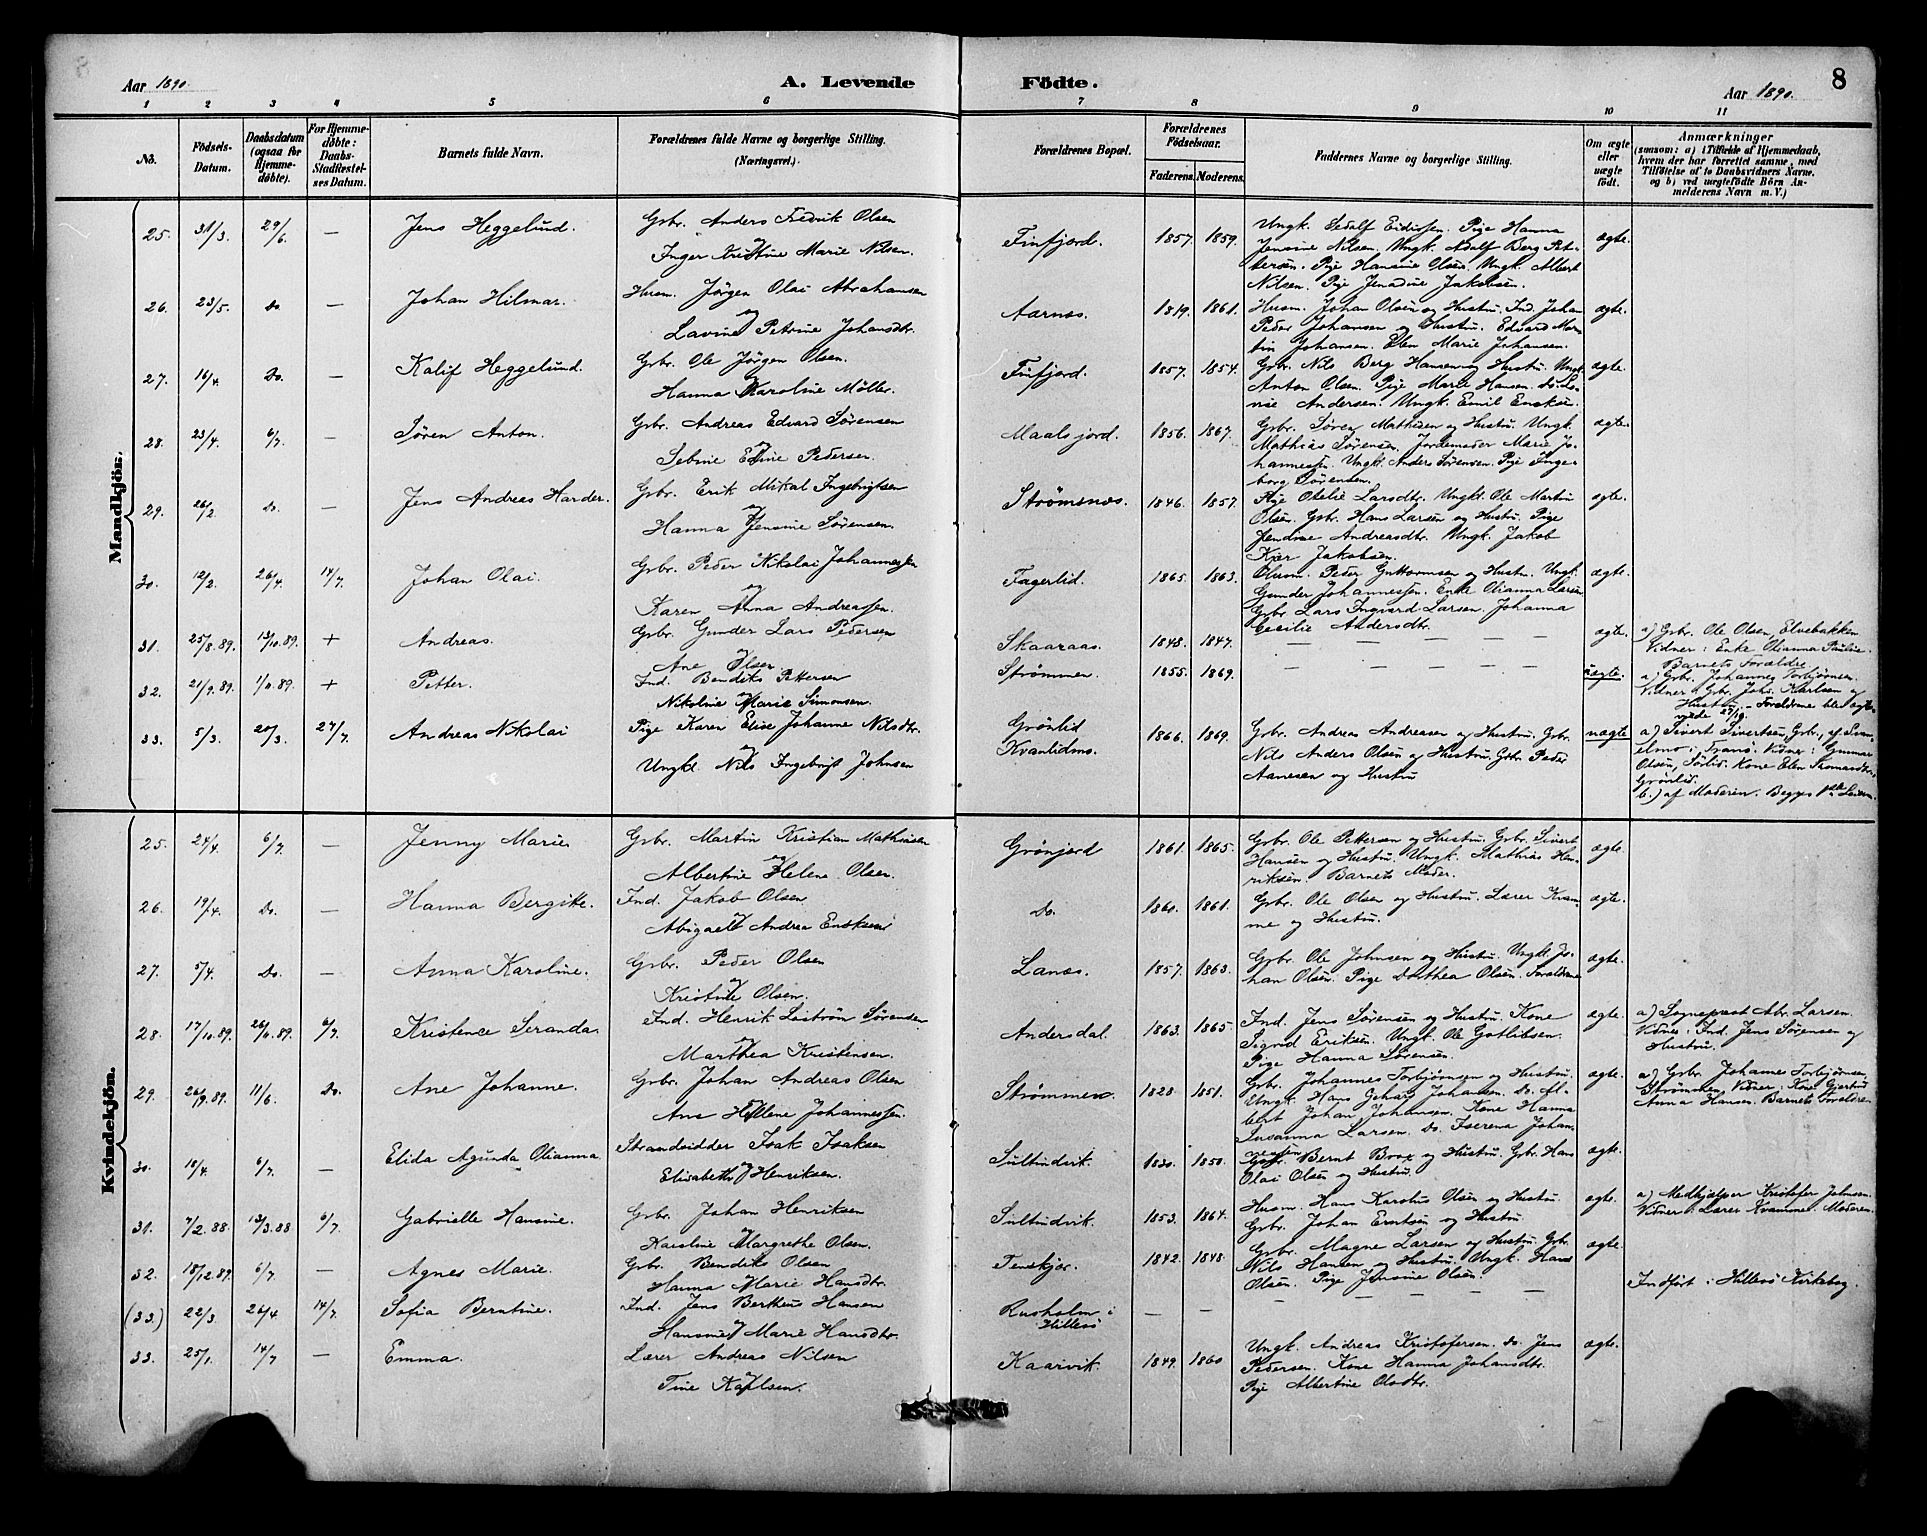 Aar 1890.
A. Levende
Födte.
Aar 1890.
8
1 2 3 4 5 6 7 8 9 10 11
No.
Födsels-
Datum.
Daabsdatum
(ogsaa for
Hjemme-
döbte).
For Hjemme-
döbte:
Daabs-
Stadfæstel-
ses Datum.
Barnets fulde Navn.
Forældrenes fulde Navne og borgerlige Stilling.
(Næringsvei.)
Forældrenes Bopæl.
Forældrenes
Födselsaar.
Faderens. Moderens.
Faddernes Navne og borgerlige Stilling.
Om ægte
eller
uægte
födt.
Anmærkninger
(saasom: a) i Tilfælde af Hjemmedaab,
hvem der har forrettet samme, med
Tilföielse af to Daabsvidners Navne,
og b) ved uægtefödte Börn An-
melderens Navn m. V.)
Mandkjön.
25. 31/3. 29/6. — Jens Heggelund. Gbr. Anders Fredrik Olsen
Inger Kristine Marie Nilsen.
Finfjord. 1857. 1859.
Ungk. Sedolf Eidissen. Pige Hanna
Jensine Nilsen. Ungk. Adolf Berg Pet-
tersen. Pige Hansine Olsen. Ungk. Albert
Nilsen. Pige Jenadine Jakobsen.
ægte.
26. 23/5. Do. — Johan Hilmar. Husm. Jørgen Olai Abrahamsen
og
Lavine Petrine Johansdtr.
Aarnæs. 1819. 1861.
Husm. Johan Olsen og Hustru. Ind. Johan
Peder Johansen og Hustru. Edvard Mar-
tin Johansen. Elen Marie Johansen.
ægte.
27. 16/4. Do. — Kalif Heggelund. Gbr. Ole Jørgen Olsen.
Hanna Karoline Møller.
Finfjord. 1857. 1854.
Gbr. Nils Berg Hansen og Hustru. Ungk.
Anton Olsen. Pige Marie Hansen. Do. Lo-
vise Andersen. Ungk. Emil Enoksen.
ægte.
28. 23/4. 6/7. — Søren Anton. Gbr. Andreas Edvard Sørensen
Sebine Edine Pedersen.
Maalsjord. 1856. 1867.
Gbr. Søren Mathisen og Hustru. Ungk.
Mathias Sørensen. Jordemoder Marie Jo-
hannessen. Ungk. Anders Sørensen. Pige Inge-
borg Sørensen.
ægte.
29. 26/2. Do. — Jens Andreas Harder. Gbr. Erik Mikal Ingebrigtsen
og
Hanna Jensine Sørensen.
Strømsnæs. 1846. 1857.
Pige Otelie Larsdtr. Ungk. Ole Martin
Olsen. Gbr. Hans Larsen og Hustru. Pige
Jendine Andreasdtr. Ungk. Jakob
Kjær Jakobsen.
ægte.
30. 12/2. 26/4. 14/7. Johan Olai. Gbr. Peder Nikolai Johannessen
og
Karen Anna Andreassen.
Fagerlid. 1865. 1863.
Husm. Peder Guttormsen og Hustru. Ungk.
Gunder Johannessen. Enke Olianna Larsen
Gbr. Lars Ingvard Larsen. Johanna
Cecilie Andersdtr.
ægte.
31. 25/8.89. 13/10.89. + Andreas. Gbr. Gunder Lars Pedersen
Ane Olsen.
Skaaraas. 1848. 1847. — — — — —
ægte.
a) Gbr. Ole Olsen, Elvebakken
Vidner: Enke Olianna Pauline.
Barnets Forældre
32. 21/9.89. 1/10.89. + Petter. Ind. Bendiks Pettersen
og
Nikoline Marie Simonsen.
Strømmen. 1855. 1869. — — — — —
uægte.
a) Gbr. Johannes Torbjørnsen.
Vidner: Gbr. Johs. Karlsen og
Hustru. – Forældrene ble ægte-
viede 27/10.
33. 5/3. 20/3. 27/7. Andreas Nikolai Pige Karen Elise Johanne Nilsdtr.
og
Ungk. Nils Ingebrigt Johnsen
Grønlid
Kvanlidmo. 1866. 1869.
Gbr. Andreas Andreasen og Hustru. Gbr.
Nils Anders Olsen og Hustru. Gbr. Peder
Aanesen og Hustru
uægte
a) Sivert Sivertsen, Gbr. af
i Tranø. Vidner: Gunnar
Olsen, Sørlid. Kone Elen
Grønlid.
b.) af Moderen. Begges 1ste Leierm.
Kvindekjön.
25. 24/4. 6/7. — Jenny Marie Gbr. Martin Kristian Mathisen
og
Albertine Helene Olsen.
Grønjord 1861. 1865.
Gbr. Ole Pettersen og Hustru. Gbr. Sivert
Hansen og Hustru. Ungk. Mathias Hen-
riksen. Barnets Moder.
ægte
26. 19/4. Do. — Hanna Bergitte. Ind. Jakob Olsen
Abigael Andrea Enoksen
Do. 1860. 1861.
Gbr. Ole Olsen og Hustru. Lærer Kvam-
me og Hustru.
ægte.
27. 5/4. Do. — Anna Karoline. Gbr. Peder Olsen
og
Kristine Olsen.
Lanæs. 1857. 1863.
Gbr. Ole Johnsen og Hustru. Ungk. Jo-
han Olsen. Pige Dorthea Olsen. Forældrene
ægte.
28. 17/10.89. 26/10.89. 6/7. Kristence Seranda. Ind. Henrik Sørensen
og
Marthea Kristensen.
Andersdal. 1863. 1865.
Ind. Jens Sørensen og Hustru. Kone
Sigrid Eriksen. Ungk. Ole Gotlibsen.
Pige Hanna Sørensen.
ægte.
a) Sogneprest Abr. Larsen.
Vidner: Ind. Jens Sørensen og
Hustru.
29. 26/9.89. 11/6. Do. Ane Johanne. Gbr. Johan Andreas Olsen
Ane Helene Johannessen.
Strømmen. 1828. 1851.
Gbr. Johannes Torbjørnsen og Hustru.
Ungk. Hans Gehart Johansen. Do. Al-
bert Johan Johansen. Kone Hanna
Susanna Larsen. Do. Iserena Johan-
nessen
ægte.
a) Gbr. Johannes Torbjørnsen,
Strømmen. Vidner: Kone Gjertrud
Anna Hansen. Barnets Forældre.
30. 10/4. 6/7. — Elida Agunda Olianna. Strandsidder Isak Isaksen
og
Elisabeth Henriksen.
Sultindvik. 1830. 1850.
Gbr. Bernt Brox og Hustru. Gbr. Hans
Olai Olsen og Hustru.
ægte.
31. 7/2.88. 13/3.88. 6/7. Gabrielle Hansine. Gbr. Johan Henriksen
og
Karoline Margrethe Olsen.
Sultindvik. 1853. 1864.
Husm. Hans Karolus Olsen og Hustru.
Gbr. Johan Erntsen og Hustru.
ægte.
a) Medhjælper Kristofer Johnsen.
Vidner: Lærer Kvamme. Moderen.
32. 18/12.89. 6/7. — Agnes Marie. Gbr. Bendiks Olsen
Hanna Marie Hansdtr.
Tenskjær. 1842. 1848.
Gbr. Magne Larsen og Hustru. Gbr.
Nils Hansen og Hustru. Ungk. Hans
Olsen. Pige Jensine Olsen.
ægte.
(33.) 22/3. 26/4. 14/7. Sofia Berntine. Ind. Jens Bertheus Hansen
og
Hansine Marie Hansdtr.
Rusholm i
Hillesø — — — — — — —
Indført i Hillesø Kirkebog.
33. 25/1. 14/7. — Emma. Lærer Andreas Nilsen
og
Tine Karlsen.
Kaarvik. 1849. 1860
Ungk. Andreas Kristofersen. Do. Jens
Pedersen. Kone Hanna Johansdtr.
Pige Albertine Olsdtr.
ægte.